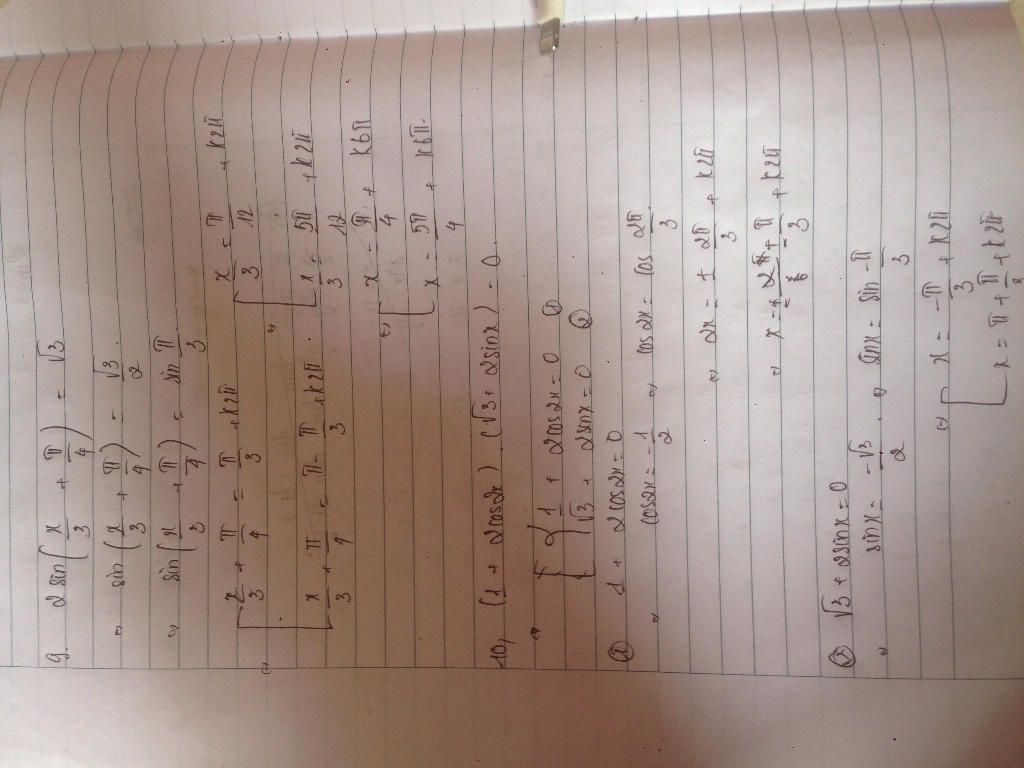 9. 2sin(x/3 + π/4) = √3
⇔ sin(x/3 + π/4) = √3/2
⇔ sin(x/3 + π/4) = sin π/3
⇔ [ x/3 + π/4 = π/3 + k2π
x/3 + π/4 = π - π/3 + k2π
⇔ [ x/3 = π/12 + k2π
x/3 = 5π/12 + k2π
⇔ [ x = π/4 + k6π
x = 5π/4 + k6π.
10, (1 + 2cos2x).(√3 + 2sinx) = 0
⇔ [ 1 + 2cos2x = 0 ①
√3 + 2sinx = 0 ②
① 1 + 2cos2x = 0
⇔ cos2x = -1/2 ⇔ cos2x = cos 2π/3
⇔ 2x = ± 2π/3 + k2π
⇔ x = ± π/3 + k2π
② √3 + 2sinx = 0
⇔ sinx = -√3/2 ⇔ sinx = sin -π/3
⇔ [ x = -π/3 + k2π
x = π + π/3 + k2π